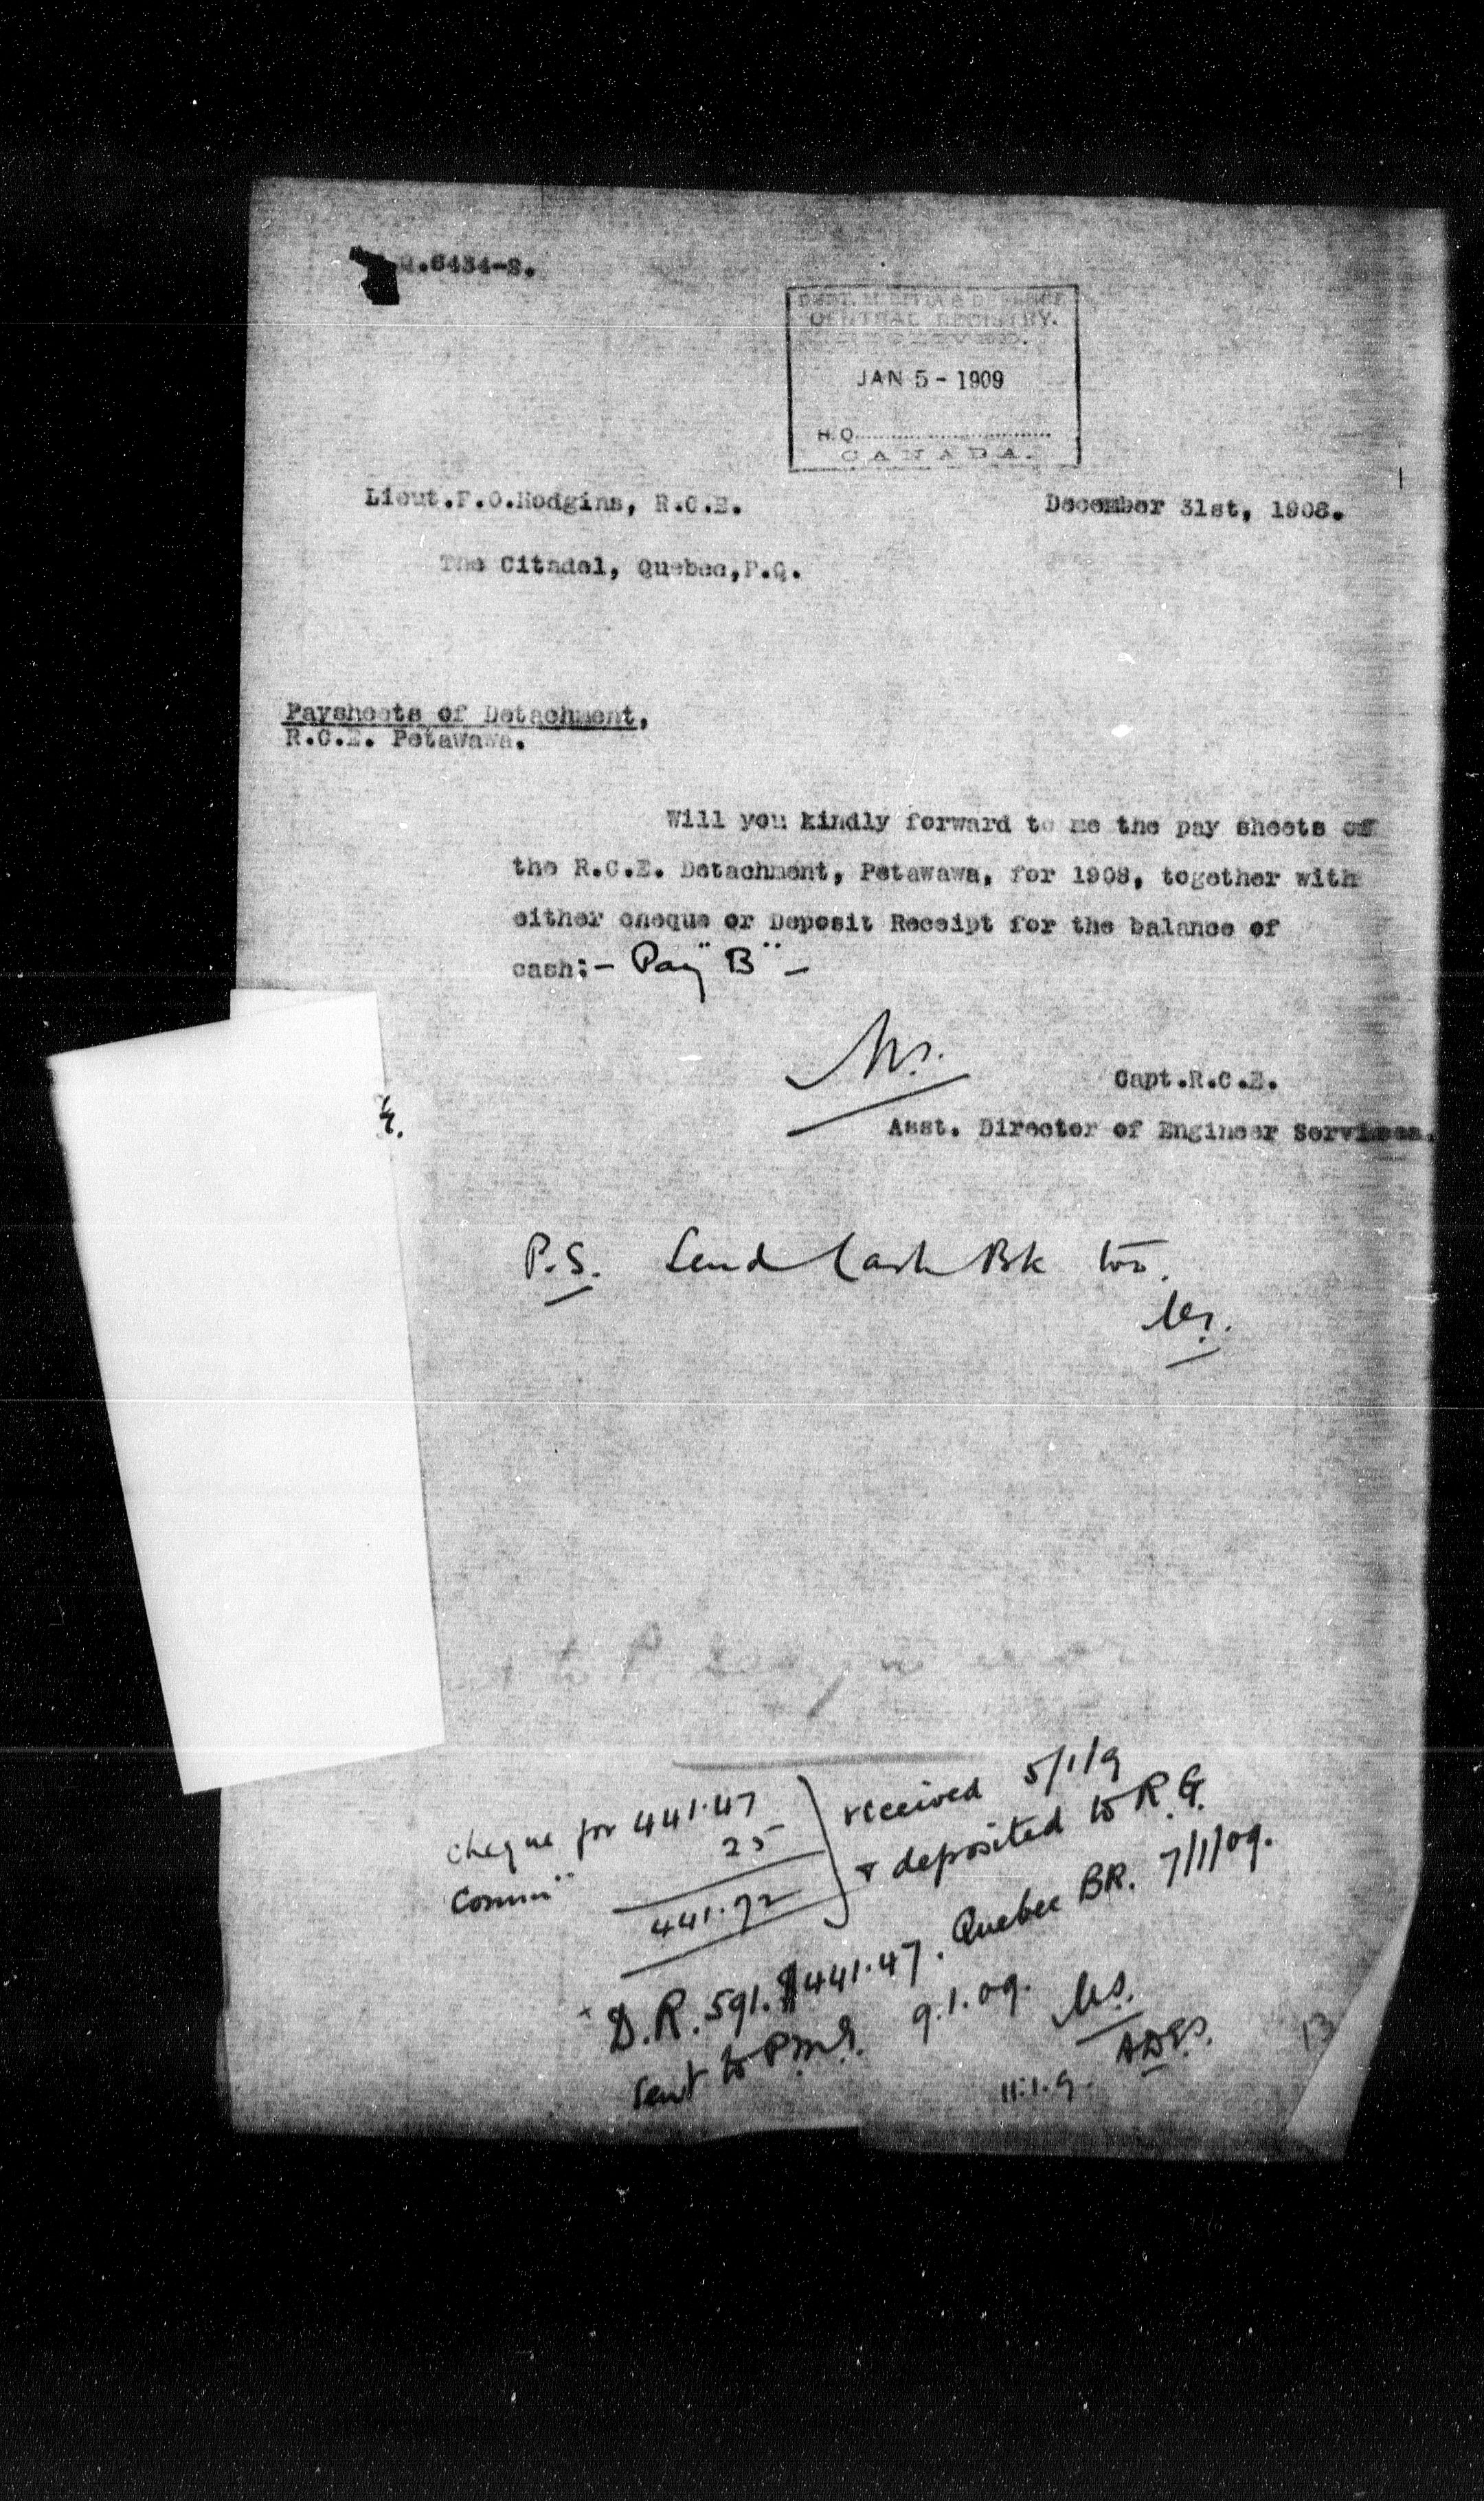 Q.6434-S.
DEPT. MILITIA & DEFENCE
CENTRAL REGISTRY.
RECEIVED.
JAN 5 - 1909
H.Q.
CANADA.
Lieut.F.O.Hodgins, R.C.E. December 31st, 1908.
The Citadel, Quebec,P.Q.
Paysheets of Detachment,
R.C.E. Petawawa.
Will you kindly forward to me the pay sheets of
the R.C.E. Detachment, Petawawa, for 1908, together with
either cheque or Deposit Receipt for the balance of
cash:- Pay "B" -
Capt.R.C.E.
Asst. Director of Engineer Services.
P.S. Send Cash Bk too.
cheque for 441.47 received 5/1/9
Comm" 25 & deposited to R.G.
441.72
D.R. 591. $441.47. Quebec BR. 7/1/09.
Sent to P.M.G. 9.1.09.
ADES.
11.1.9
13